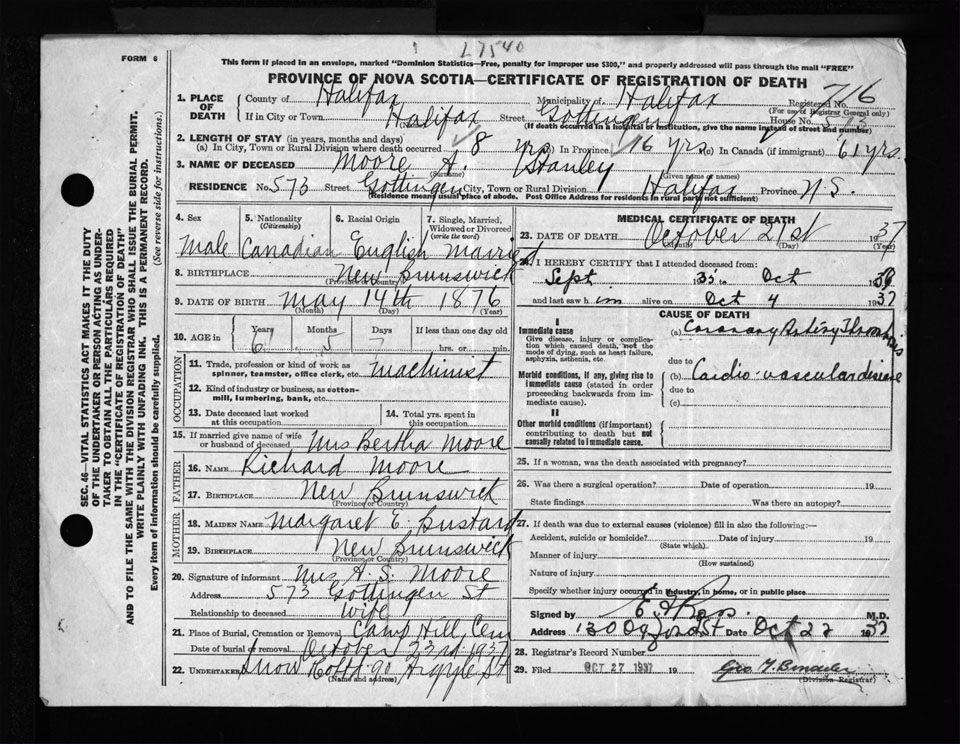 1 L7540
FORM 6
This form if placed in an envelope, marked "Dominion Statistics—Free, penalty for improper use $300," and properly addressed will pass through the mail "FREE"
PROVINCE OF NOVA SCOTIA—CERTIFICATE OF REGISTRATION OF DEATH
1. PLACE OF DEATH County of Halifax Municipality of Halifax Registered No. 716
(For use of Registrar General only)
If in City or Town Halifax Street Gottingen House No. 573
(Name)
(If death occurred in a hospital or institution, give the name instead of street and number)
2. LENGTH OF STAY (in years, months and days)
(a) In City, Town or Rural Division where death occurred 8 yrs (b) In Province 16 yrs (c) In Canada (if immigrant) 61 yrs.
3. NAME OF DECEASED Moore A. Stanley
(Surname) (Given name or names)
RESIDENCE No. 573 Street Gottingen City, Town or Rural Division Halifax Province N.S.
(Residence means usual place of abode. Post Office Address for residents in rural parts not sufficient)
4. Sex 5. Nationality (Citizenship) 6. Racial Origin 7. Single, Married, Widowed or Divorced (write the word)
Male Canadian English Married
8. BIRTHPLACE New Brunswick
(Province or Country)
9. DATE OF BIRTH May 14th 1876
(Month) (Day) (Year)
10. AGE in Years Months Days If less than one day old
61 5 7 hrs. or min.
OCCUPATION
11. Trade, profession or kind of work as spinner, teamster, office clerk, etc. Machinist
12. Kind of industry or business, as cotton-mill, lumbering, bank, etc.
13. Date deceased last worked at this occupation 14. Total yrs. spent in this occupation
15. If married give name of wife or husband of deceased Mrs Bertha Moore
FATHER
16. NAME Richard Moore
17. BIRTHPLACE New Brunswick
(Province or Country)
MOTHER
18. MAIDEN NAME Margaret E. Bustard
19. BIRTHPLACE New Brunswick
(Province or Country)
20. Signature of informant Mrs A. S. Moore
Address 573 Gottingen St
Relationship to deceased Wife
21. Place of Burial, Cremation or Removal Camp Hill, Cem
Date of burial or removal October 23rd 1937
22. UNDERTAKER Snow & Co Ltd 90 Argyle St
(Name and address)
MEDICAL CERTIFICATE OF DEATH
23. DATE OF DEATH October 21st 1937
(Month) (Day) (Year)
24. I HEREBY CERTIFY that I attended deceased from:
Sept 35 to Oct 1936
and last saw him alive on Oct 4 1937
CAUSE OF DEATH
I
Immediate cause (a) Coronary Artery Thrombosis
Give disease, injury or complication which caused death, not the mode of dying, such as heart failure, asphyxia, asthenia, etc.
due to
Morbid conditions, if any, giving rise to immediate cause (stated in order proceeding backwards from immediate cause). (b) Cardio-vascular disease
due to
(c)
II
Other morbid conditions (if important) contributing to death but not causally related to immediate cause.
25. If a woman, was the death associated with pregnancy?
26. Was there a surgical operation? Date of operation 19
State findings Was there an autopsy?
27. If death was due to external causes (violence) fill in also the following:—
Accident, suicide or homicide? Date of injury 19
(State which)
Manner of injury
(How sustained)
Nature of injury
Specify whether injury occurred in industry, in home, or in public place
Signed by E. F. Ross M.D.
Address 130 Oxford St Date Oct 22 1937
28. Registrar's Record Number
29. Filed OCT 27 1937 19 Geo.
(Division Registrar)
SEC. 46—VITAL STATISTICS ACT MAKES IT THE DUTY
OF THE UNDERTAKER OR PERSON ACTING AS UNDER-
TAKER TO OBTAIN ALL THE PARTICULARS REQUIRED
IN THE "CERTIFICATE OF REGISTRATION OF DEATH"
AND TO FILE THE SAME WITH THE DIVISION REGISTRAR WHO SHALL ISSUE THE BURIAL PERMIT.
WRITE PLAINLY WITH UNFADING INK. THIS IS A PERMANENT RECORD.
Every item of information should be carefully supplied. (See reverse side for instructions.)